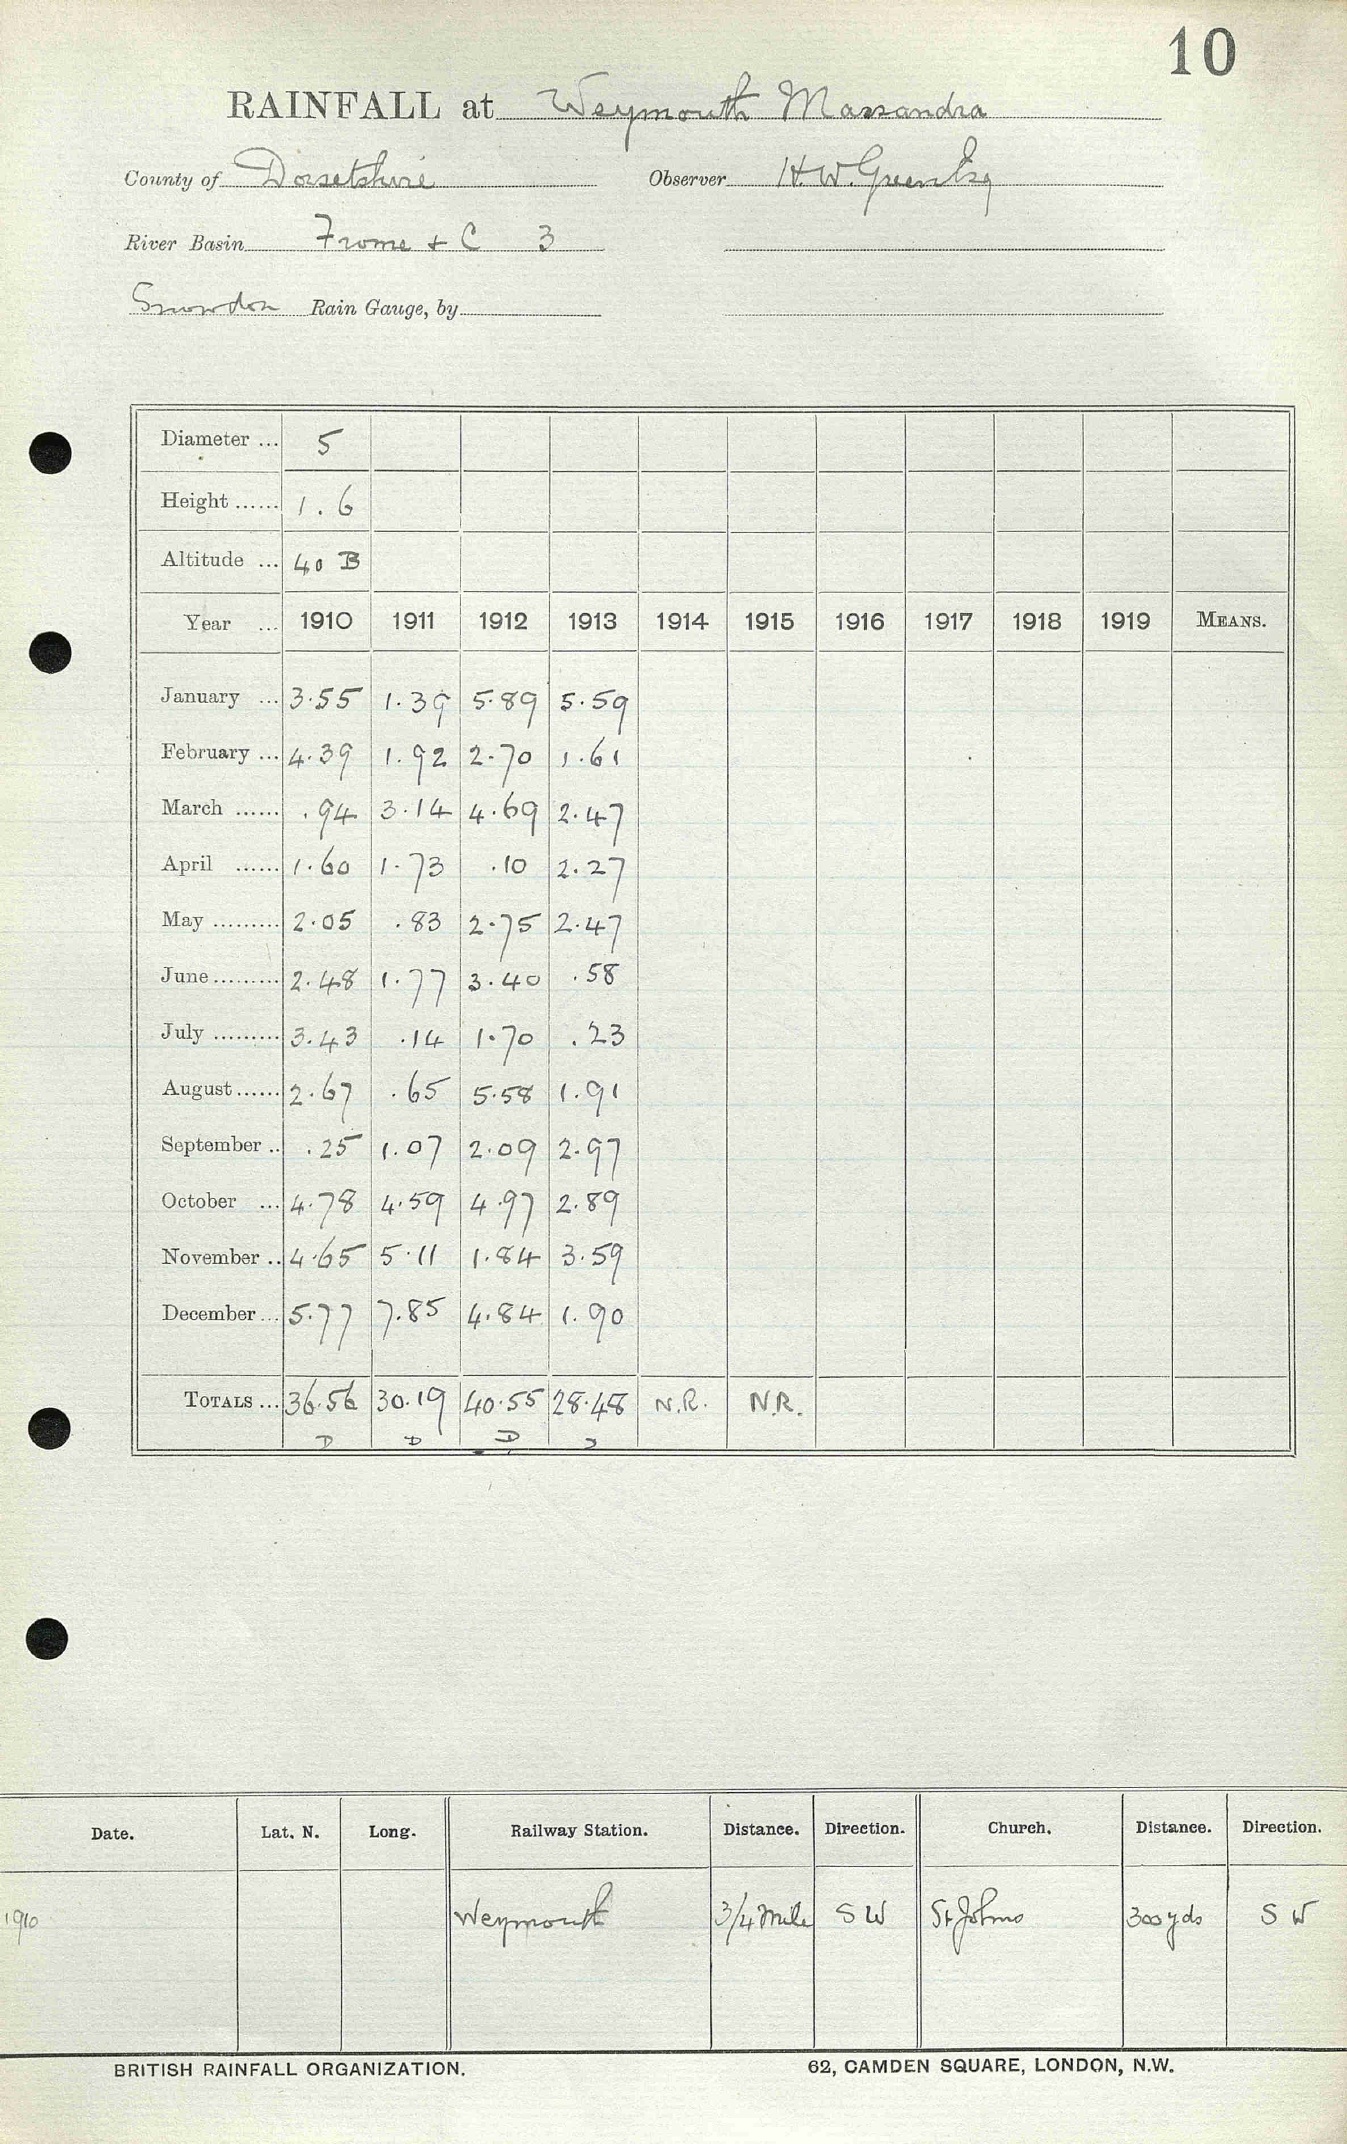 10
RAINFALL at Weymouth Massandra
County of Dorsetshire Observer H.W. Green Esq
River Basin Frome + C 3
Snowdon Rain Gauge, by
Diameter ... 5
Height ...... 1.6
Altitude ... 40 B
Year ... 1910 1911 1912 1913 1914 1915 1916 1917 1918 1919 MEANS.
January ... 3.55 1.39 5.89 5.59
February ... 4.39 1.92 2.70 1.61
March ...... .94 3.14 4.69 2.47
April ...... 1.60 1.73 .10 2.27
May ......... 2.05 .83 2.75 2.47
June ......... 2.48 1.77 3.40 .58
July ......... 3.43 .14 1.70 .23
August ...... 2.67 .65 5.58 1.91
September .. .25 1.07 2.09 2.97
October ... 4.78 4.59 4.97 2.89
November .. 4.65 5.11 1.84 3.59
December ... 5.77 7.85 4.84 1.90
TOTALS ... 36.56 30.19 40.55 28.48 N.R. N.R.
D D D
Date. Lat. N. Long. Railway Station. Distance. Direction. Church. Distance. Direction.
1910 Weymouth 3/4 Mile S W St Johns 300 yds S W
BRITISH RAINFALL ORGANIZATION. 62, CAMDEN SQUARE, LONDON, N.W.